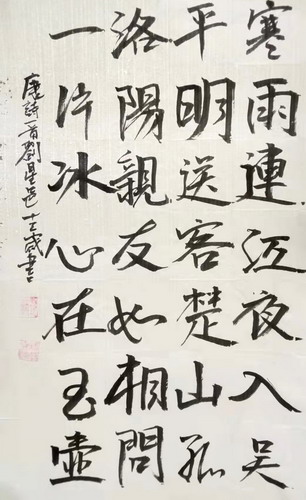 寒雨連江夜入吴
平明送客楚山孤
洛陽親友如相問
一片冰心在玉壺
唐詩一首劉星邑十二歲書